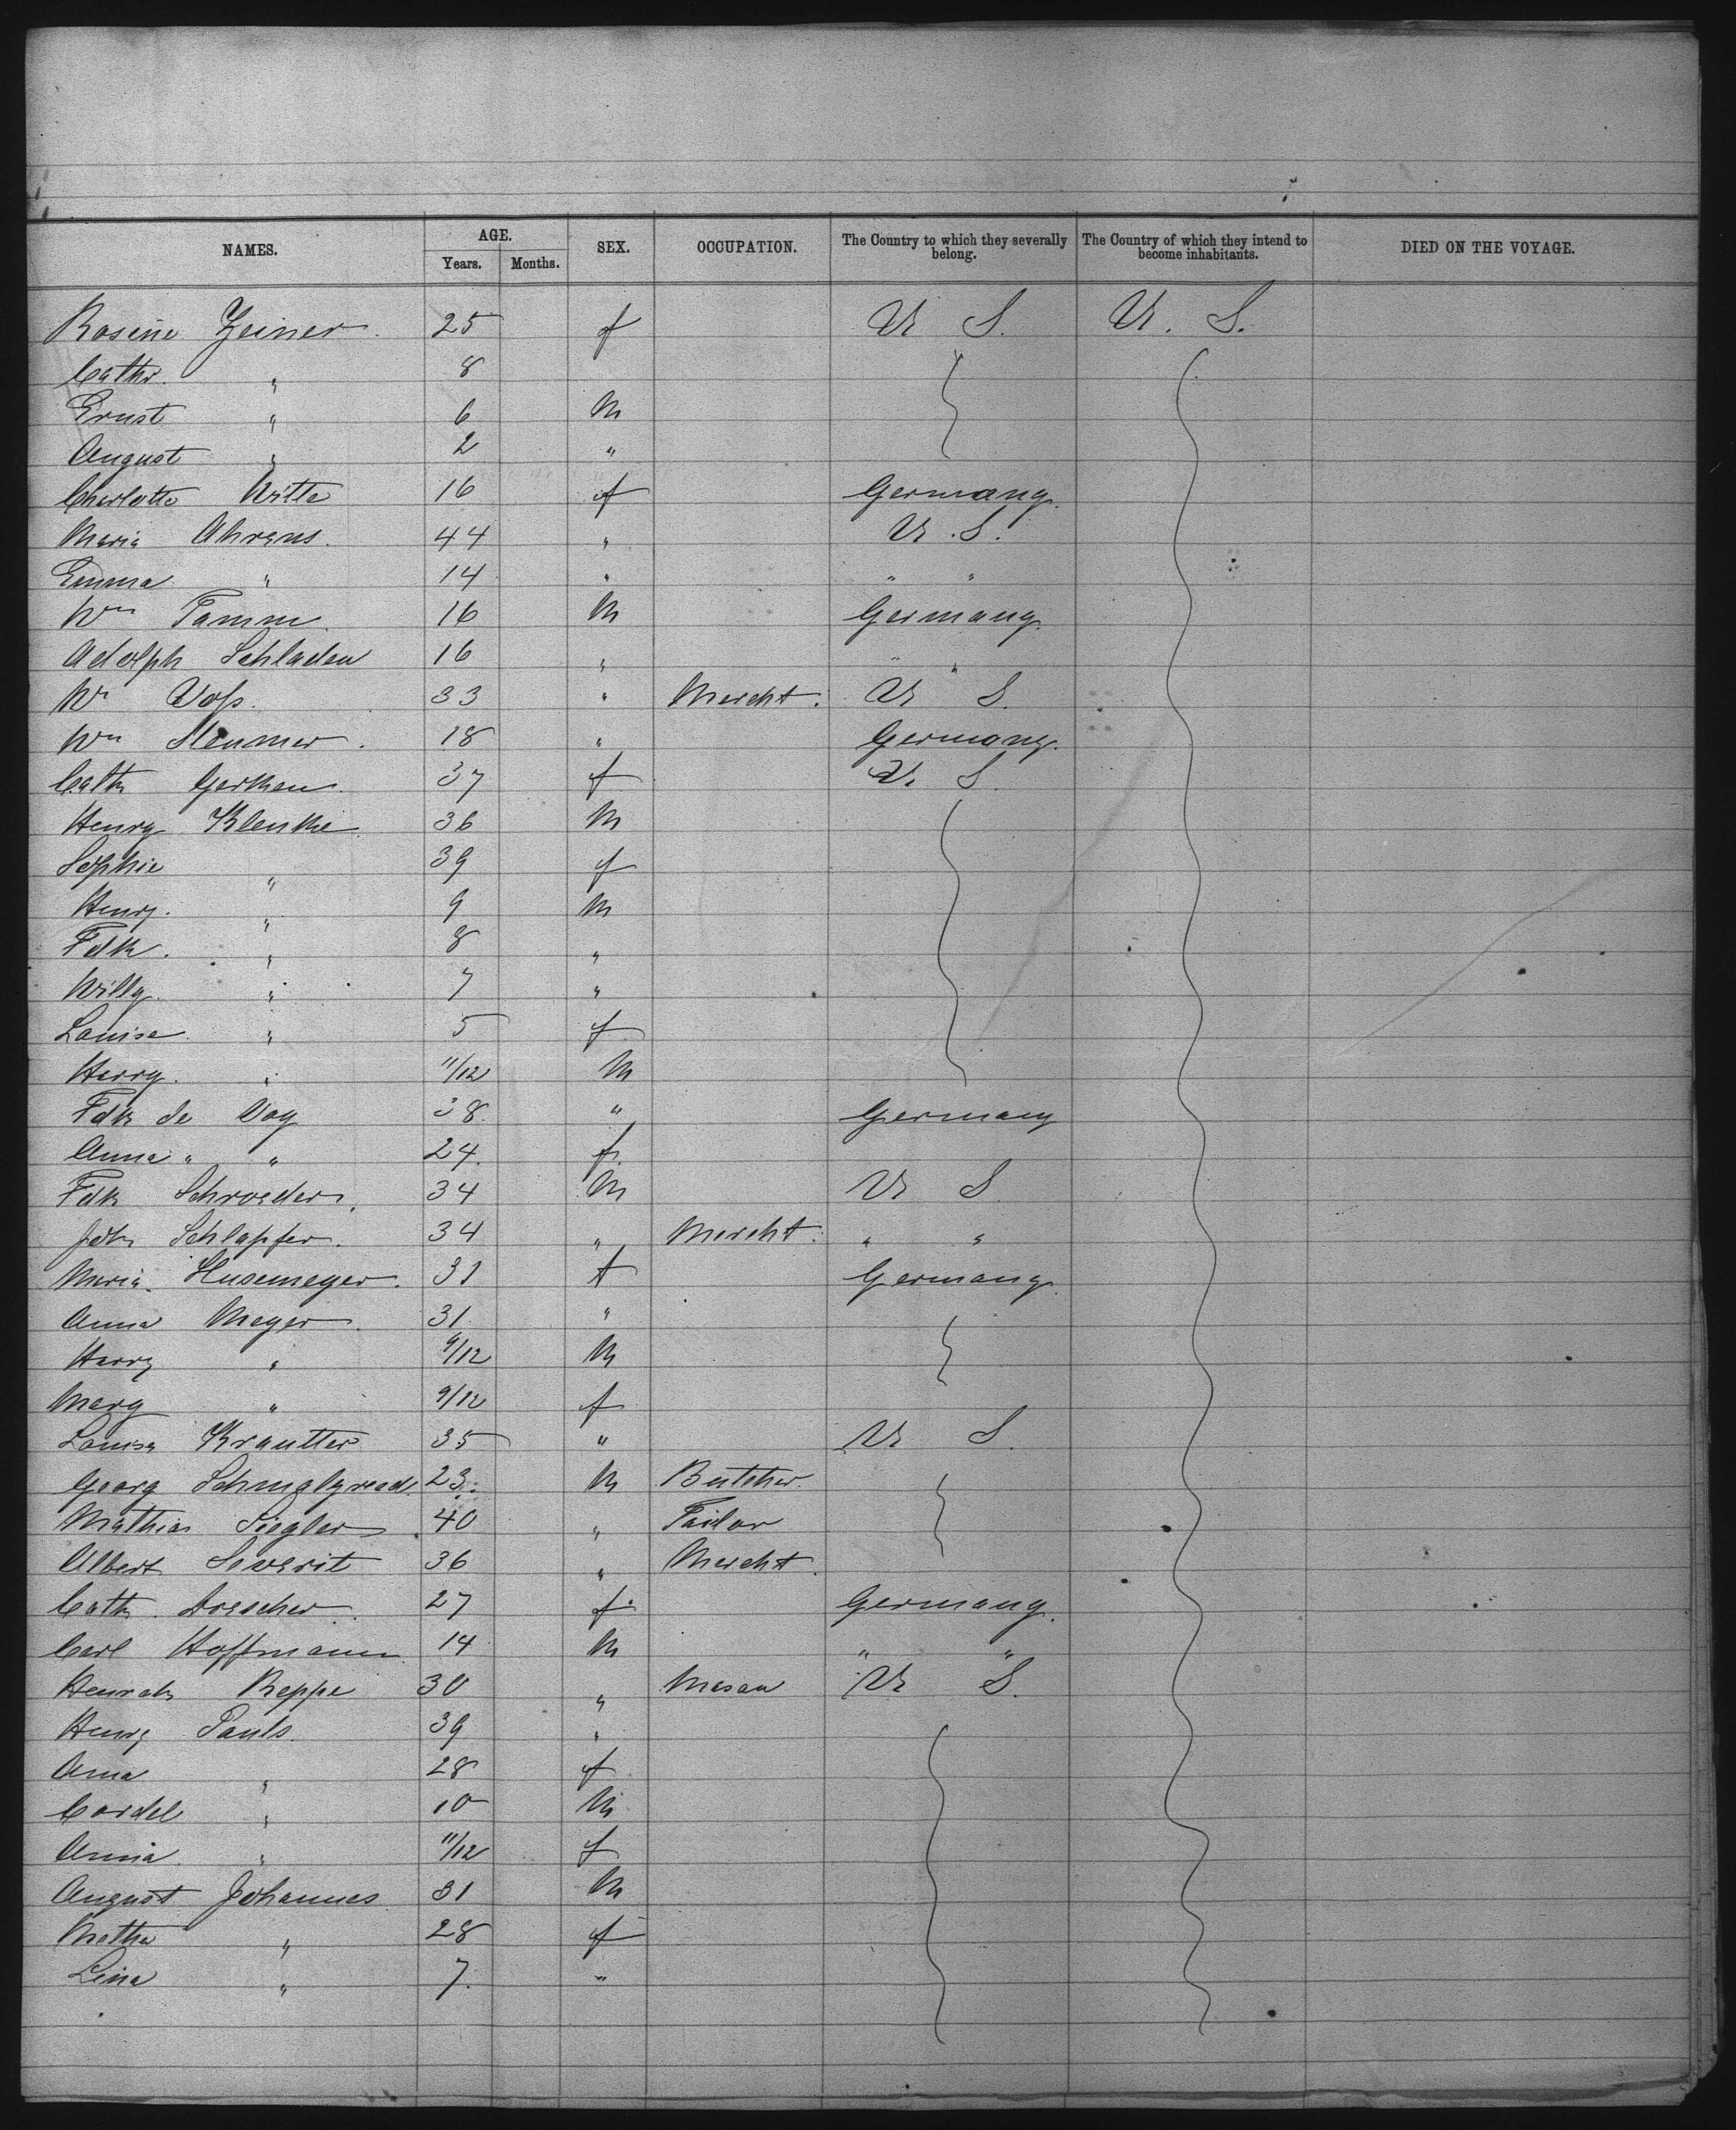 NAMES. AGE. Years. Months. SEX. OCCUPATION. The Country to which they severally belong. The Country of which they intend to become inhabitants. DIED ON THE VOYAGE.
Rosine Zeiner. 25 f U S. U. S.
Cathr. " 8
Ernst " 6 M
August " 2 "
Charlotte Witte 16 f Germany.
Maria Ahrens. 44 " U. S.
Emma " 14 " " "
Wm Tamm. 16 M Germany.
Adolph Schladen 16 " " "
Wm Voss. 33 " Mercht. U S.
Wm 18 " Germany.
Cath Gerken. 37 f U S.
Henry Klenke. 36 M
Sophie " 39 f
Henry. " 9 M
Fdk. " 8 "
Willy. " 7 "
Louise. " 5 f
Harry. " 11/12 M
Fdk de Voy 38. " Germany
Anna " " 24. f.
Fdk Schroeder. 34 M U S.
Joh Schlapfer. 34 " Mercht. " "
Maria. Husemeyer. 31 f Germany.
Anna Meyer. 31. "
Harry " 9/12 M
Marg " 9/12 f
Louisa Krautter 35 " U S.
Georg 23. M Butcher.
Mathias Siegler 40 " Tailor
Albert Severit 36 " Mercht.
Cath. Drescher. 27 f Germany.
Carl Hoffmann. 14 M " "
Heinrich Reppe 30 " Mason U S.
Henry Pauls. 39 "
Anna " 28 f
Cordel " 10 M
Anna. " 11/12 f
August Johannes 31 M
Metha " 28 f
Lina " 7. "